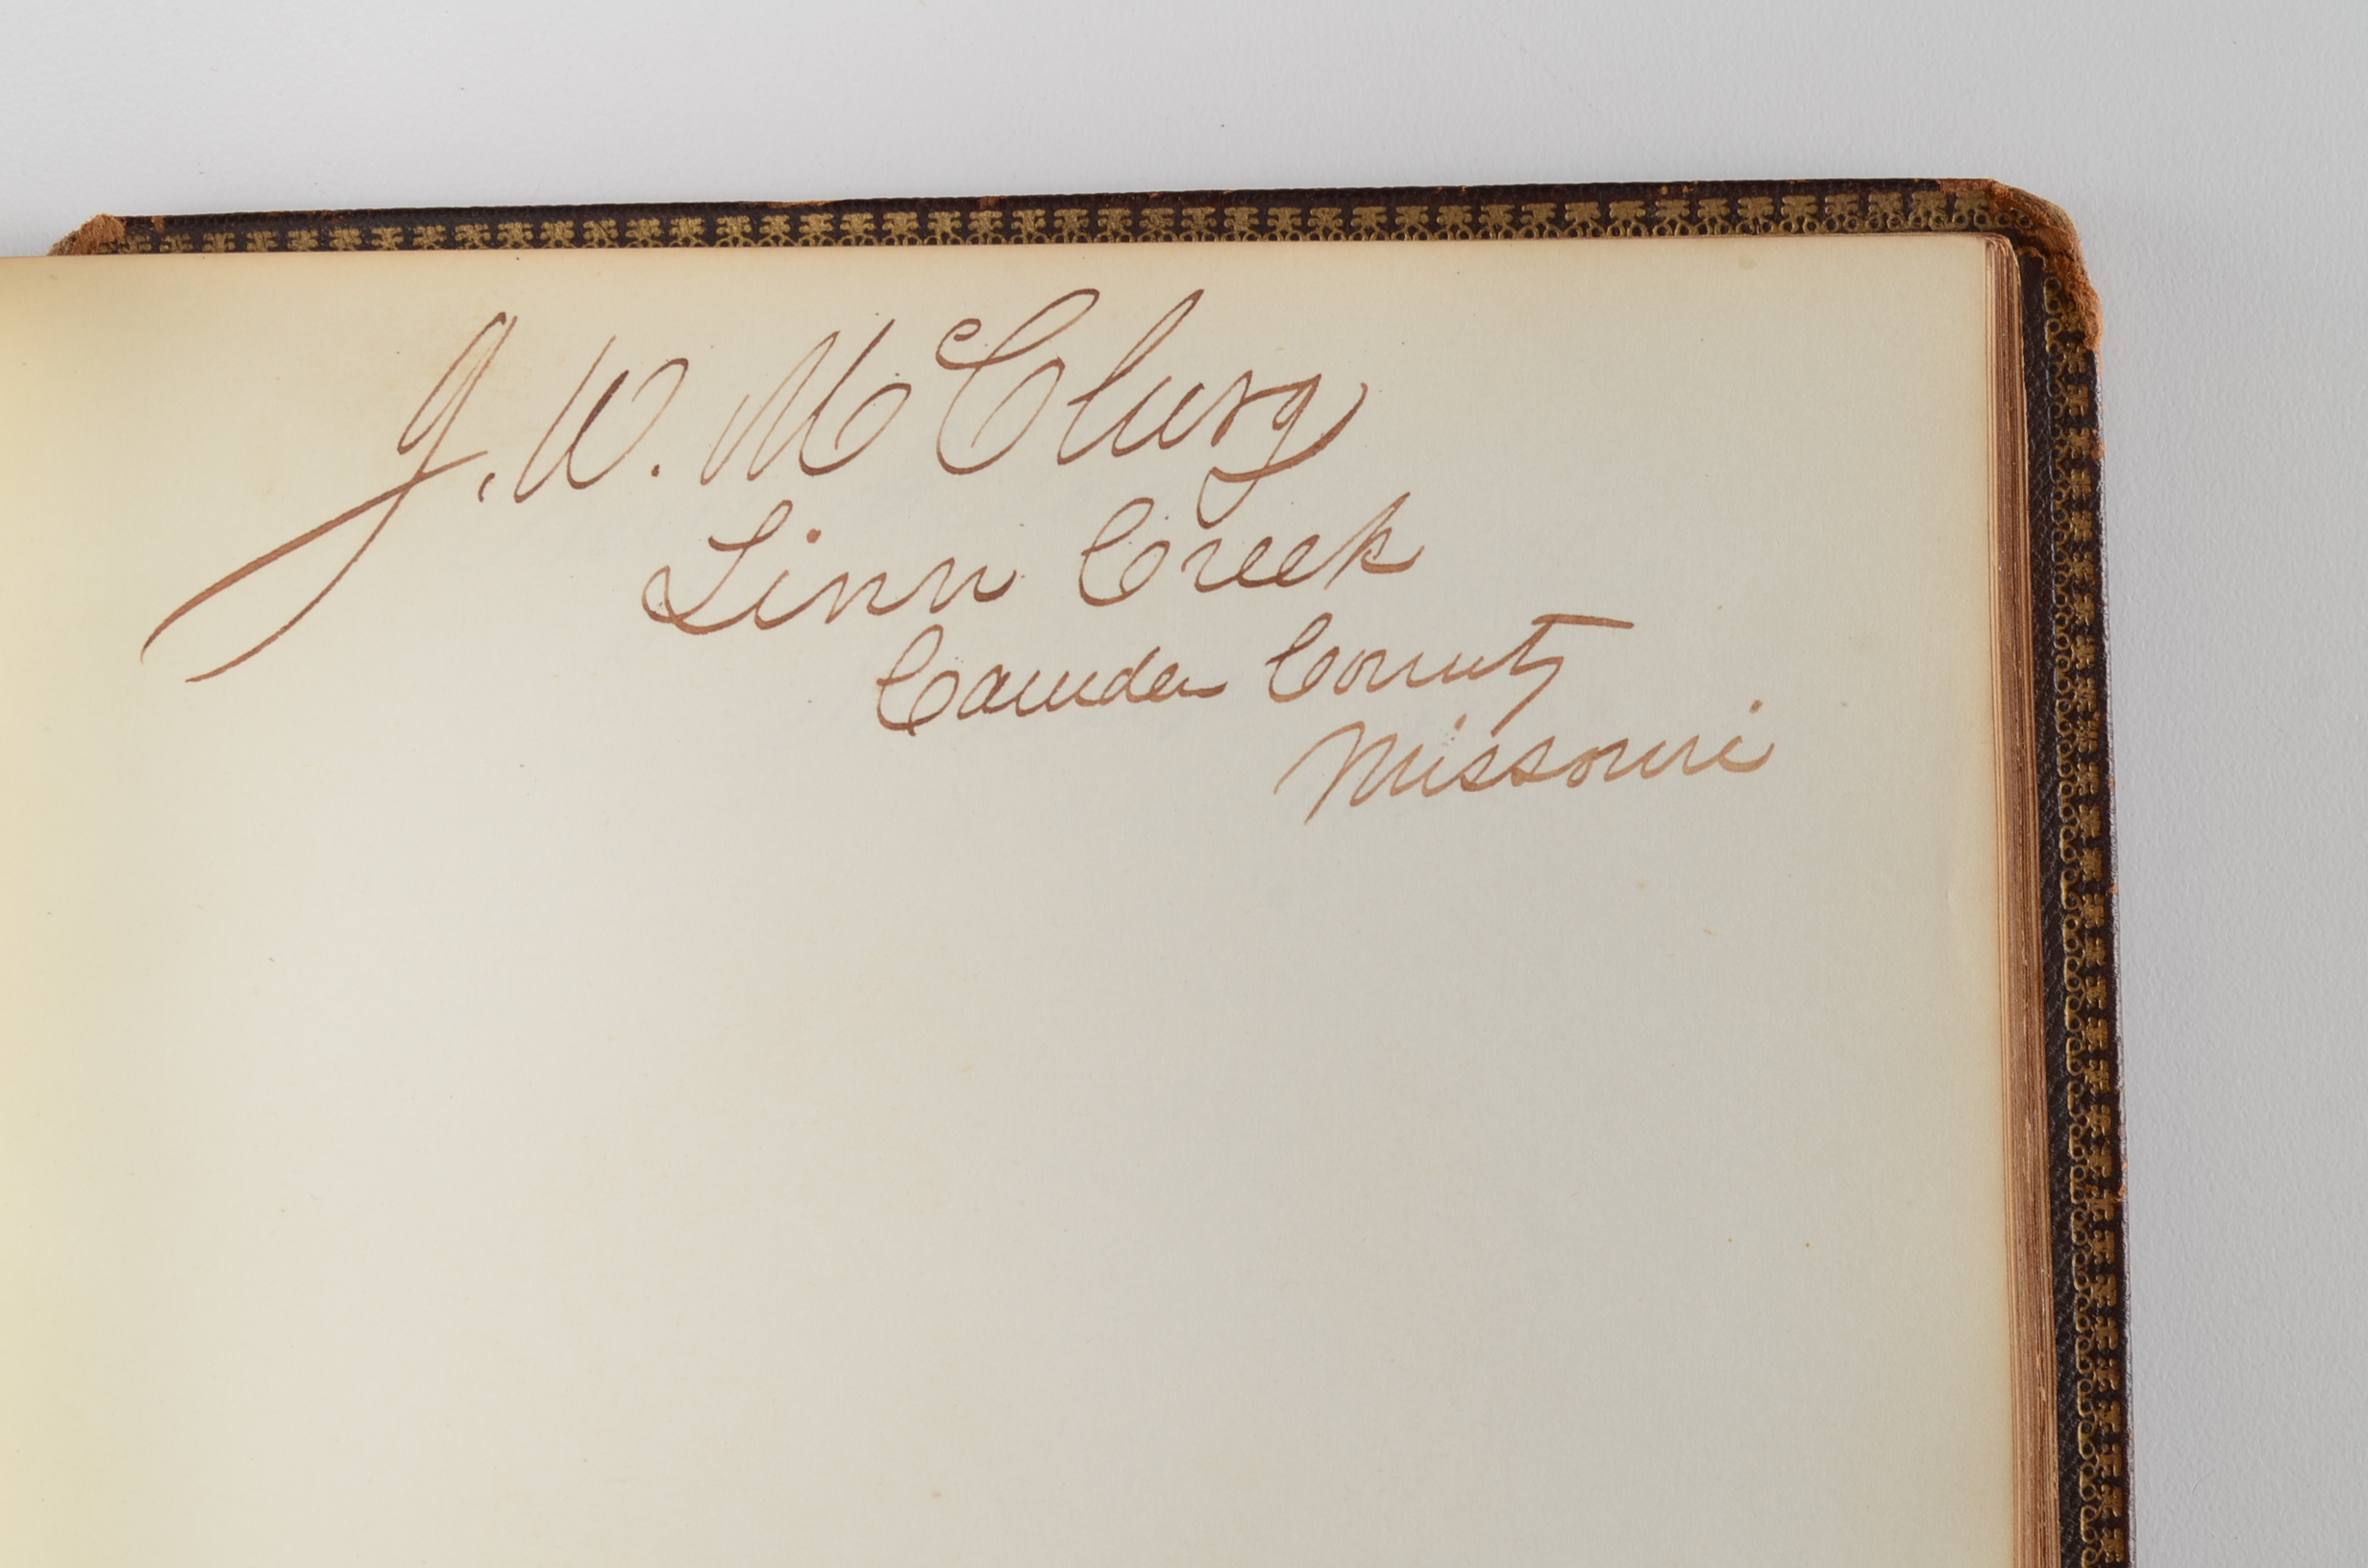 J. W. McClurg
Linn Creek
Camden County
Missouri